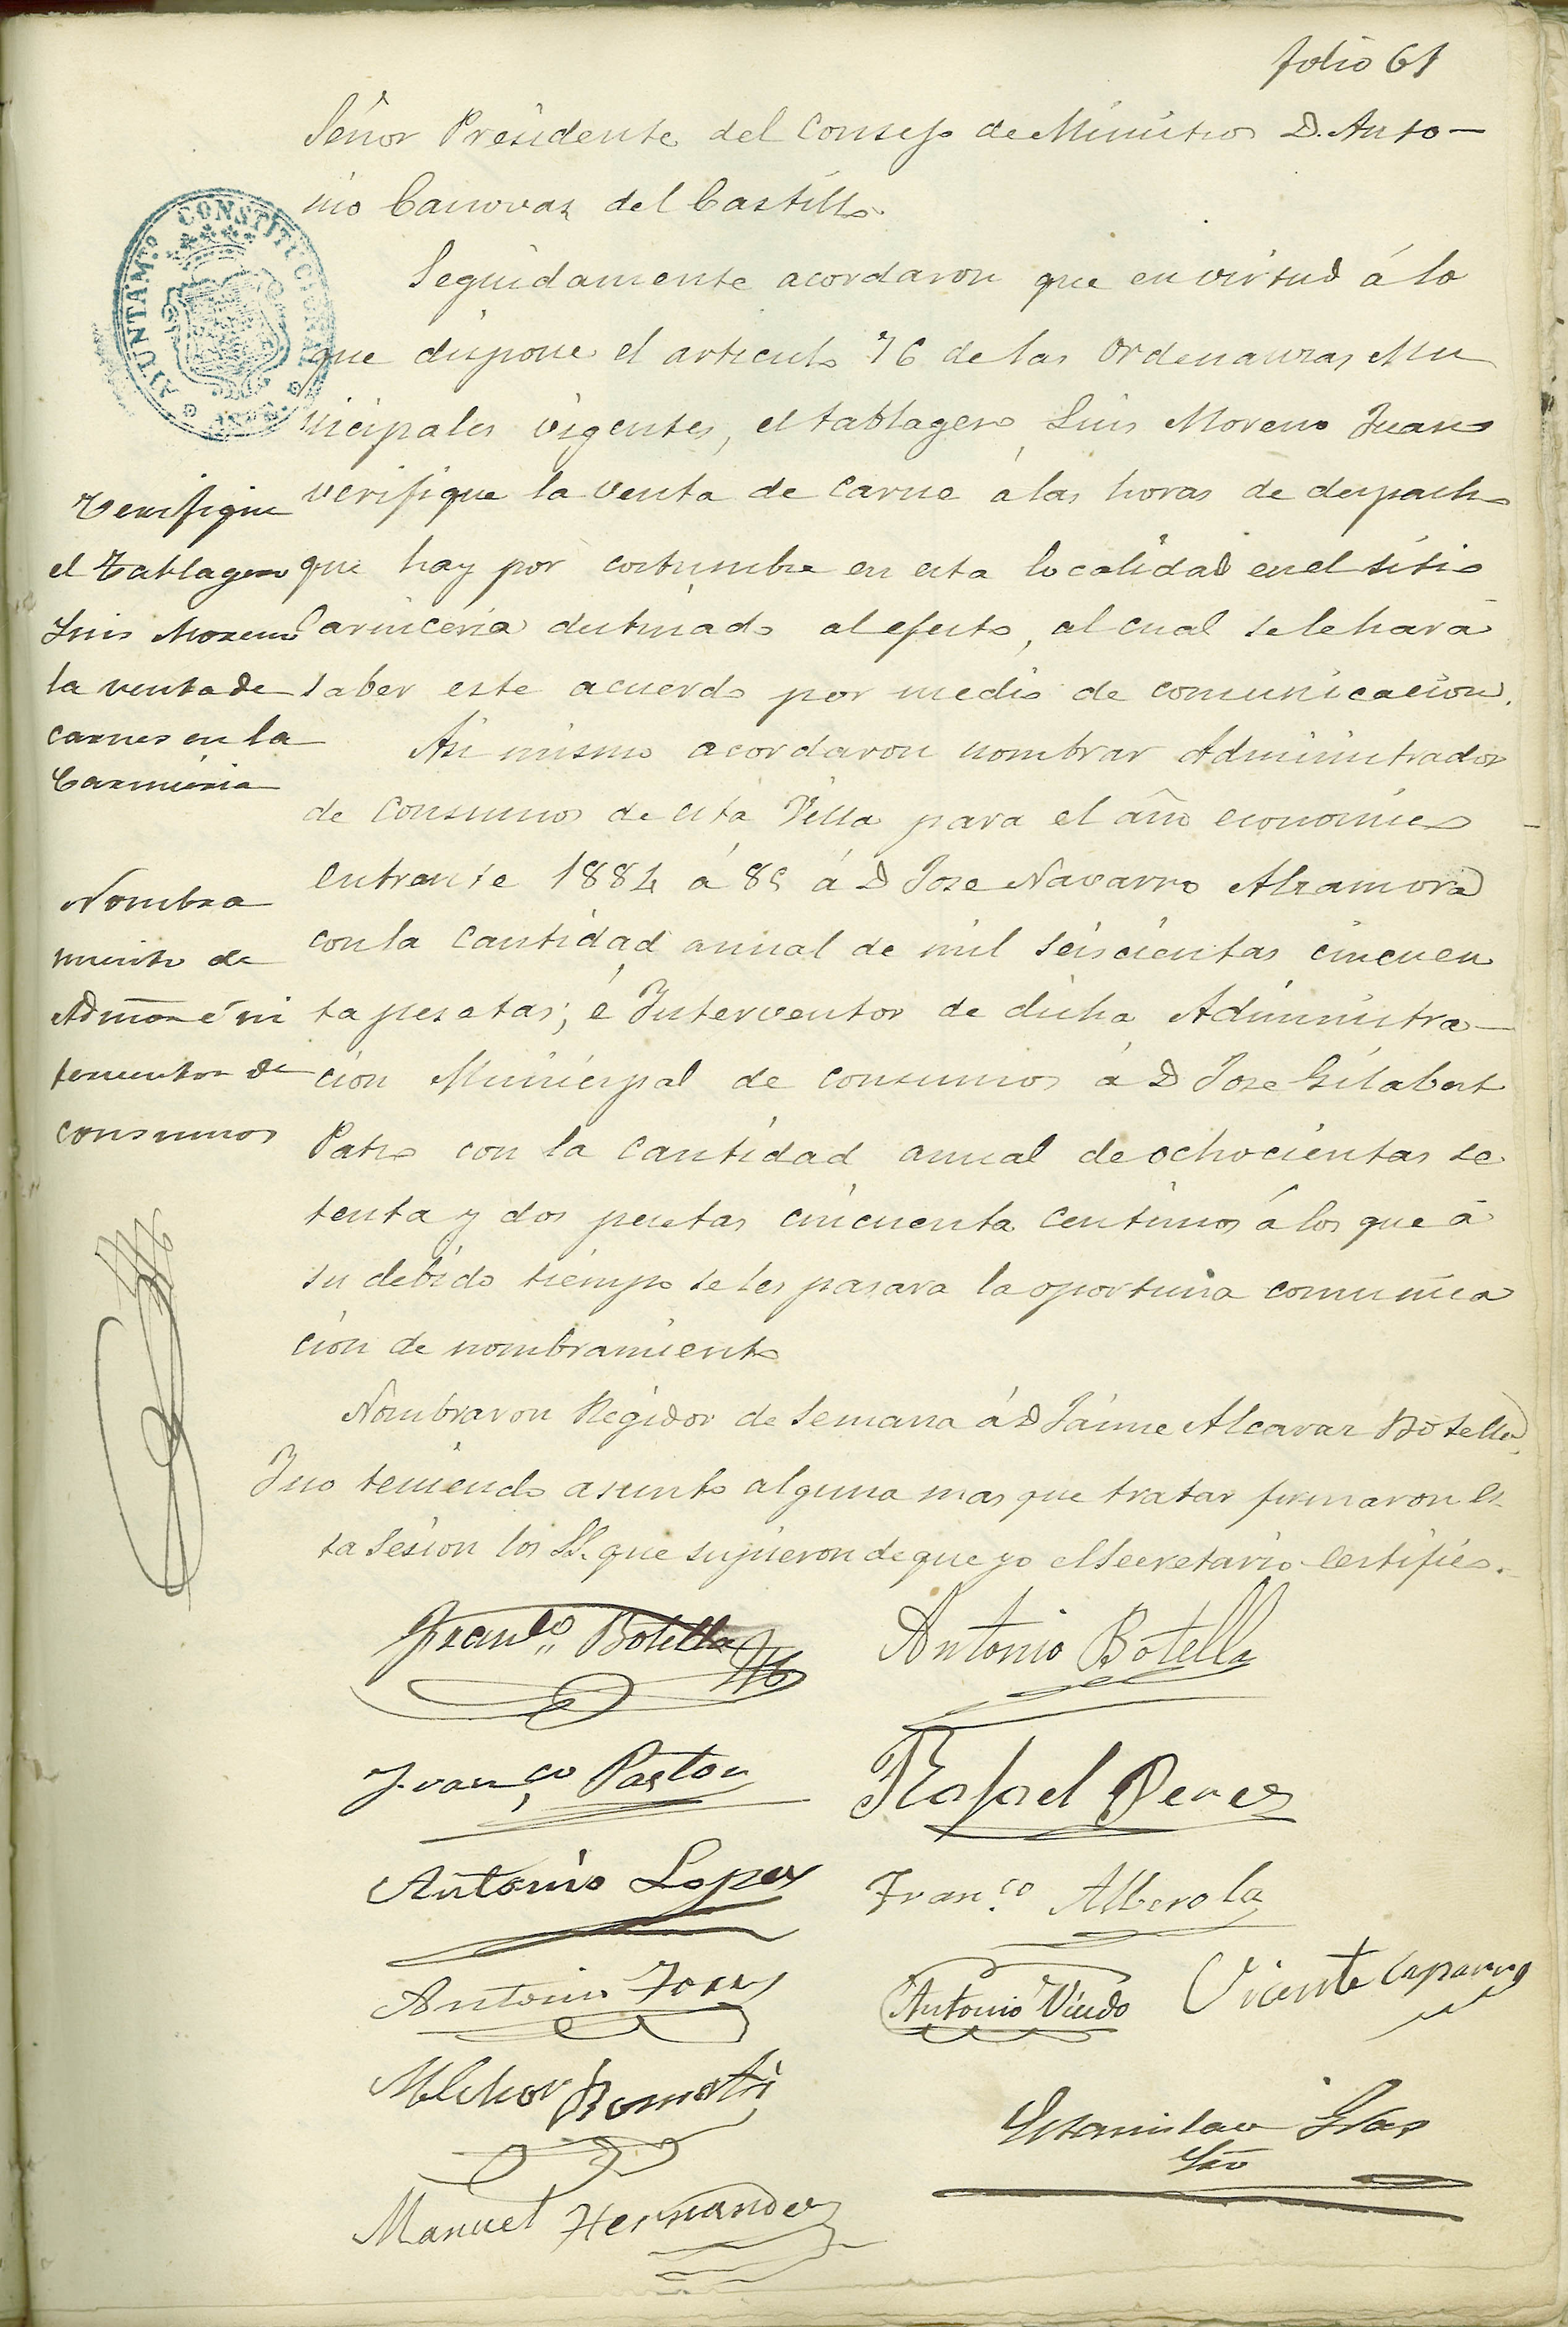 folio 61
Señor Presidente del Consejo de Ministros D. Anto-
nio Canovas del Castillo.
Seguidamente acordaron que en virtud á lo
que dispone el articulo 76 de las Ordenanzas Mu
nicipales vigentes, el tablagero Luis Moreno Juan
verifique la venta de carne á las horas de despacho
que hay por costumbre en esta localidad en el sitio
Carniceria destinado al efecto, al cual se le hará
saber este acuerdo por medio de comunicacion.
Asi mismo acordaron nombrar Administrador
de Consumos de esta Villa para el año economico
entrante 1884 á 85 á D Jose Navarro Alzamora
con la cantidad anual de mil seiscientas cincuen
ta pesetas; é Interventor de dicha Administra-
cion Municipal de consumos á D Jose Gilabert
Patro con la cantidad anual de ochocientas se
tenta y dos pesetas cincuenta centimos á los que á
su debido tiempo se les pasara la oportuna comunica
cion de nombramiento
Nombraron Regidor de Semana á D Jaime Alcaraz Botella.
Y no teniendo asunto alguna mas que tratar firmaron es
ta Sesion los SS. que supieron de que yo el Secretario Certifico.
AYUNTAM.TO CONSTITUCIONAL
Verifique
el Tablagero
Luis Moreno
la venta de
carnes en la
Carniceria
Nombra
miento de
Admon é in
terventor de
consumos
Franco. Botella
Antonio Botella
Franco Pastor
Rafael Perez
Antonio Lopez
Franco. Alberola
Antonio
Antonio Vicedo
Vicente Caparros
Melchor
Estanislao
Srio
Manuel Hernandez